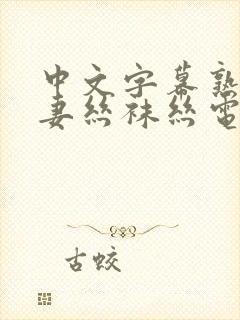 中文字幕熟
妻丝袜丝電
古蛟